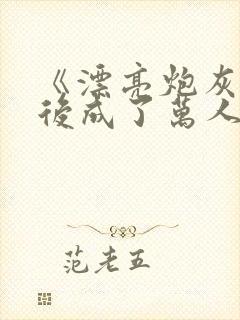 《漂亮炮灰
後成了萬人
范老五